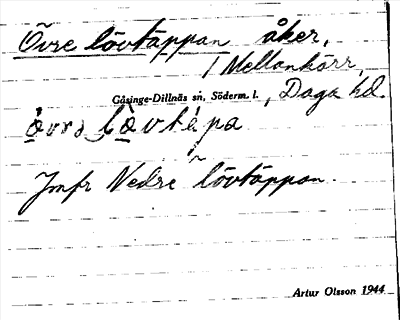 Övre lövtäppan åker,
/ Mellankärr,
Gåsinge-Dillnäs sn, Söderm. l., Daga hd.
Jmfr Nedre lövtäppan.
Artur Olsson 1944